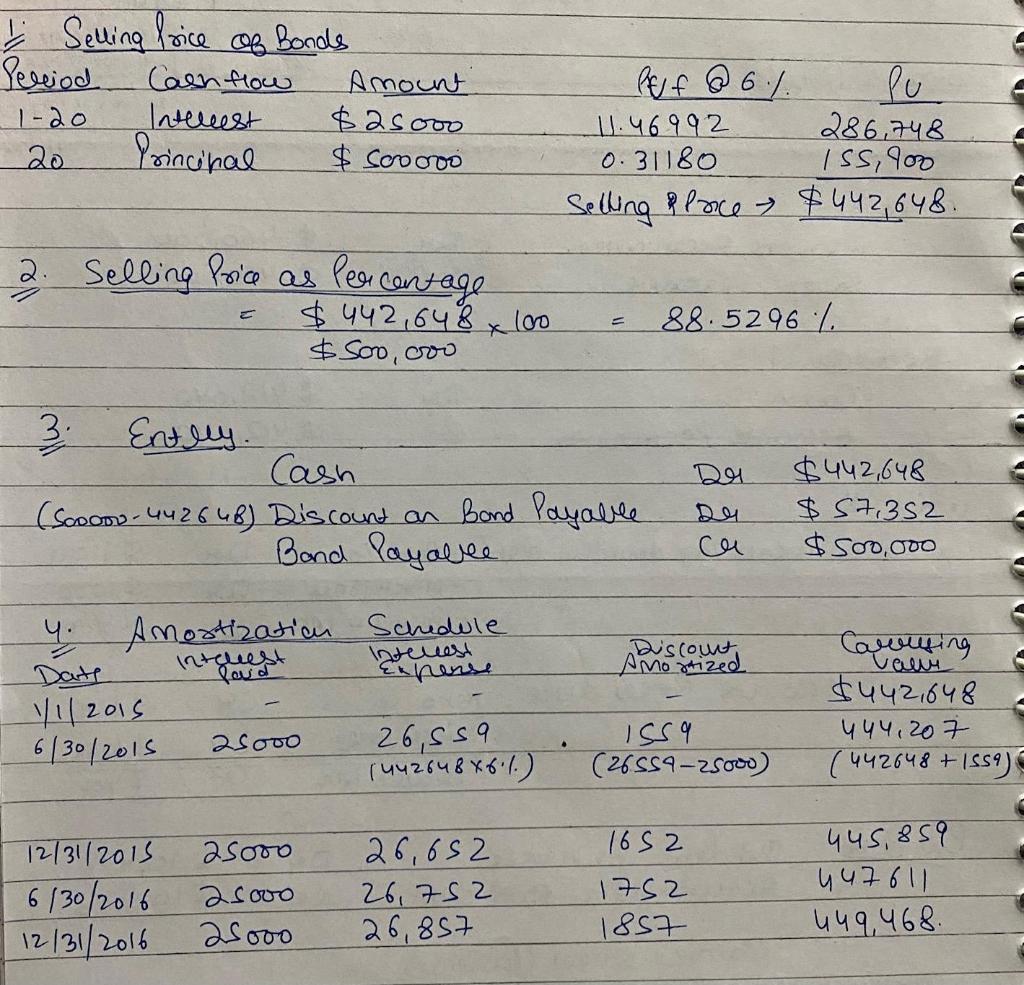 1. Selling Price of Bonds
Period Cash flow Amount PVf @ 6% PV
1-20 Interest $25000 11.46992 286,748
20 Principal $500000 0.31180 155,900
Selling Price → $442,648.
2. Selling Price as Percentage
= $442,648 × 100 = 88.5296 %.
$500,000
3. Entry.
Cash Dr $442,648
(500000-442648) Discount on Bond Payable Dr $57,352
Bond Payable Cr $500,000
4. Amortization Schedule
Date Interest Paid Interest Expense Discount Amortized Carrying Value
1/1/2015 - - - $442,648
6/30/2015 25000 26,559 1559 444,207
(442648×6%) (26559-25000) (442648+1559)
12/31/2015 25000 26,652 1652 445,859
6/30/2016 25000 26,752 1752 447611
12/31/2016 25000 26,857 1857 449,468.